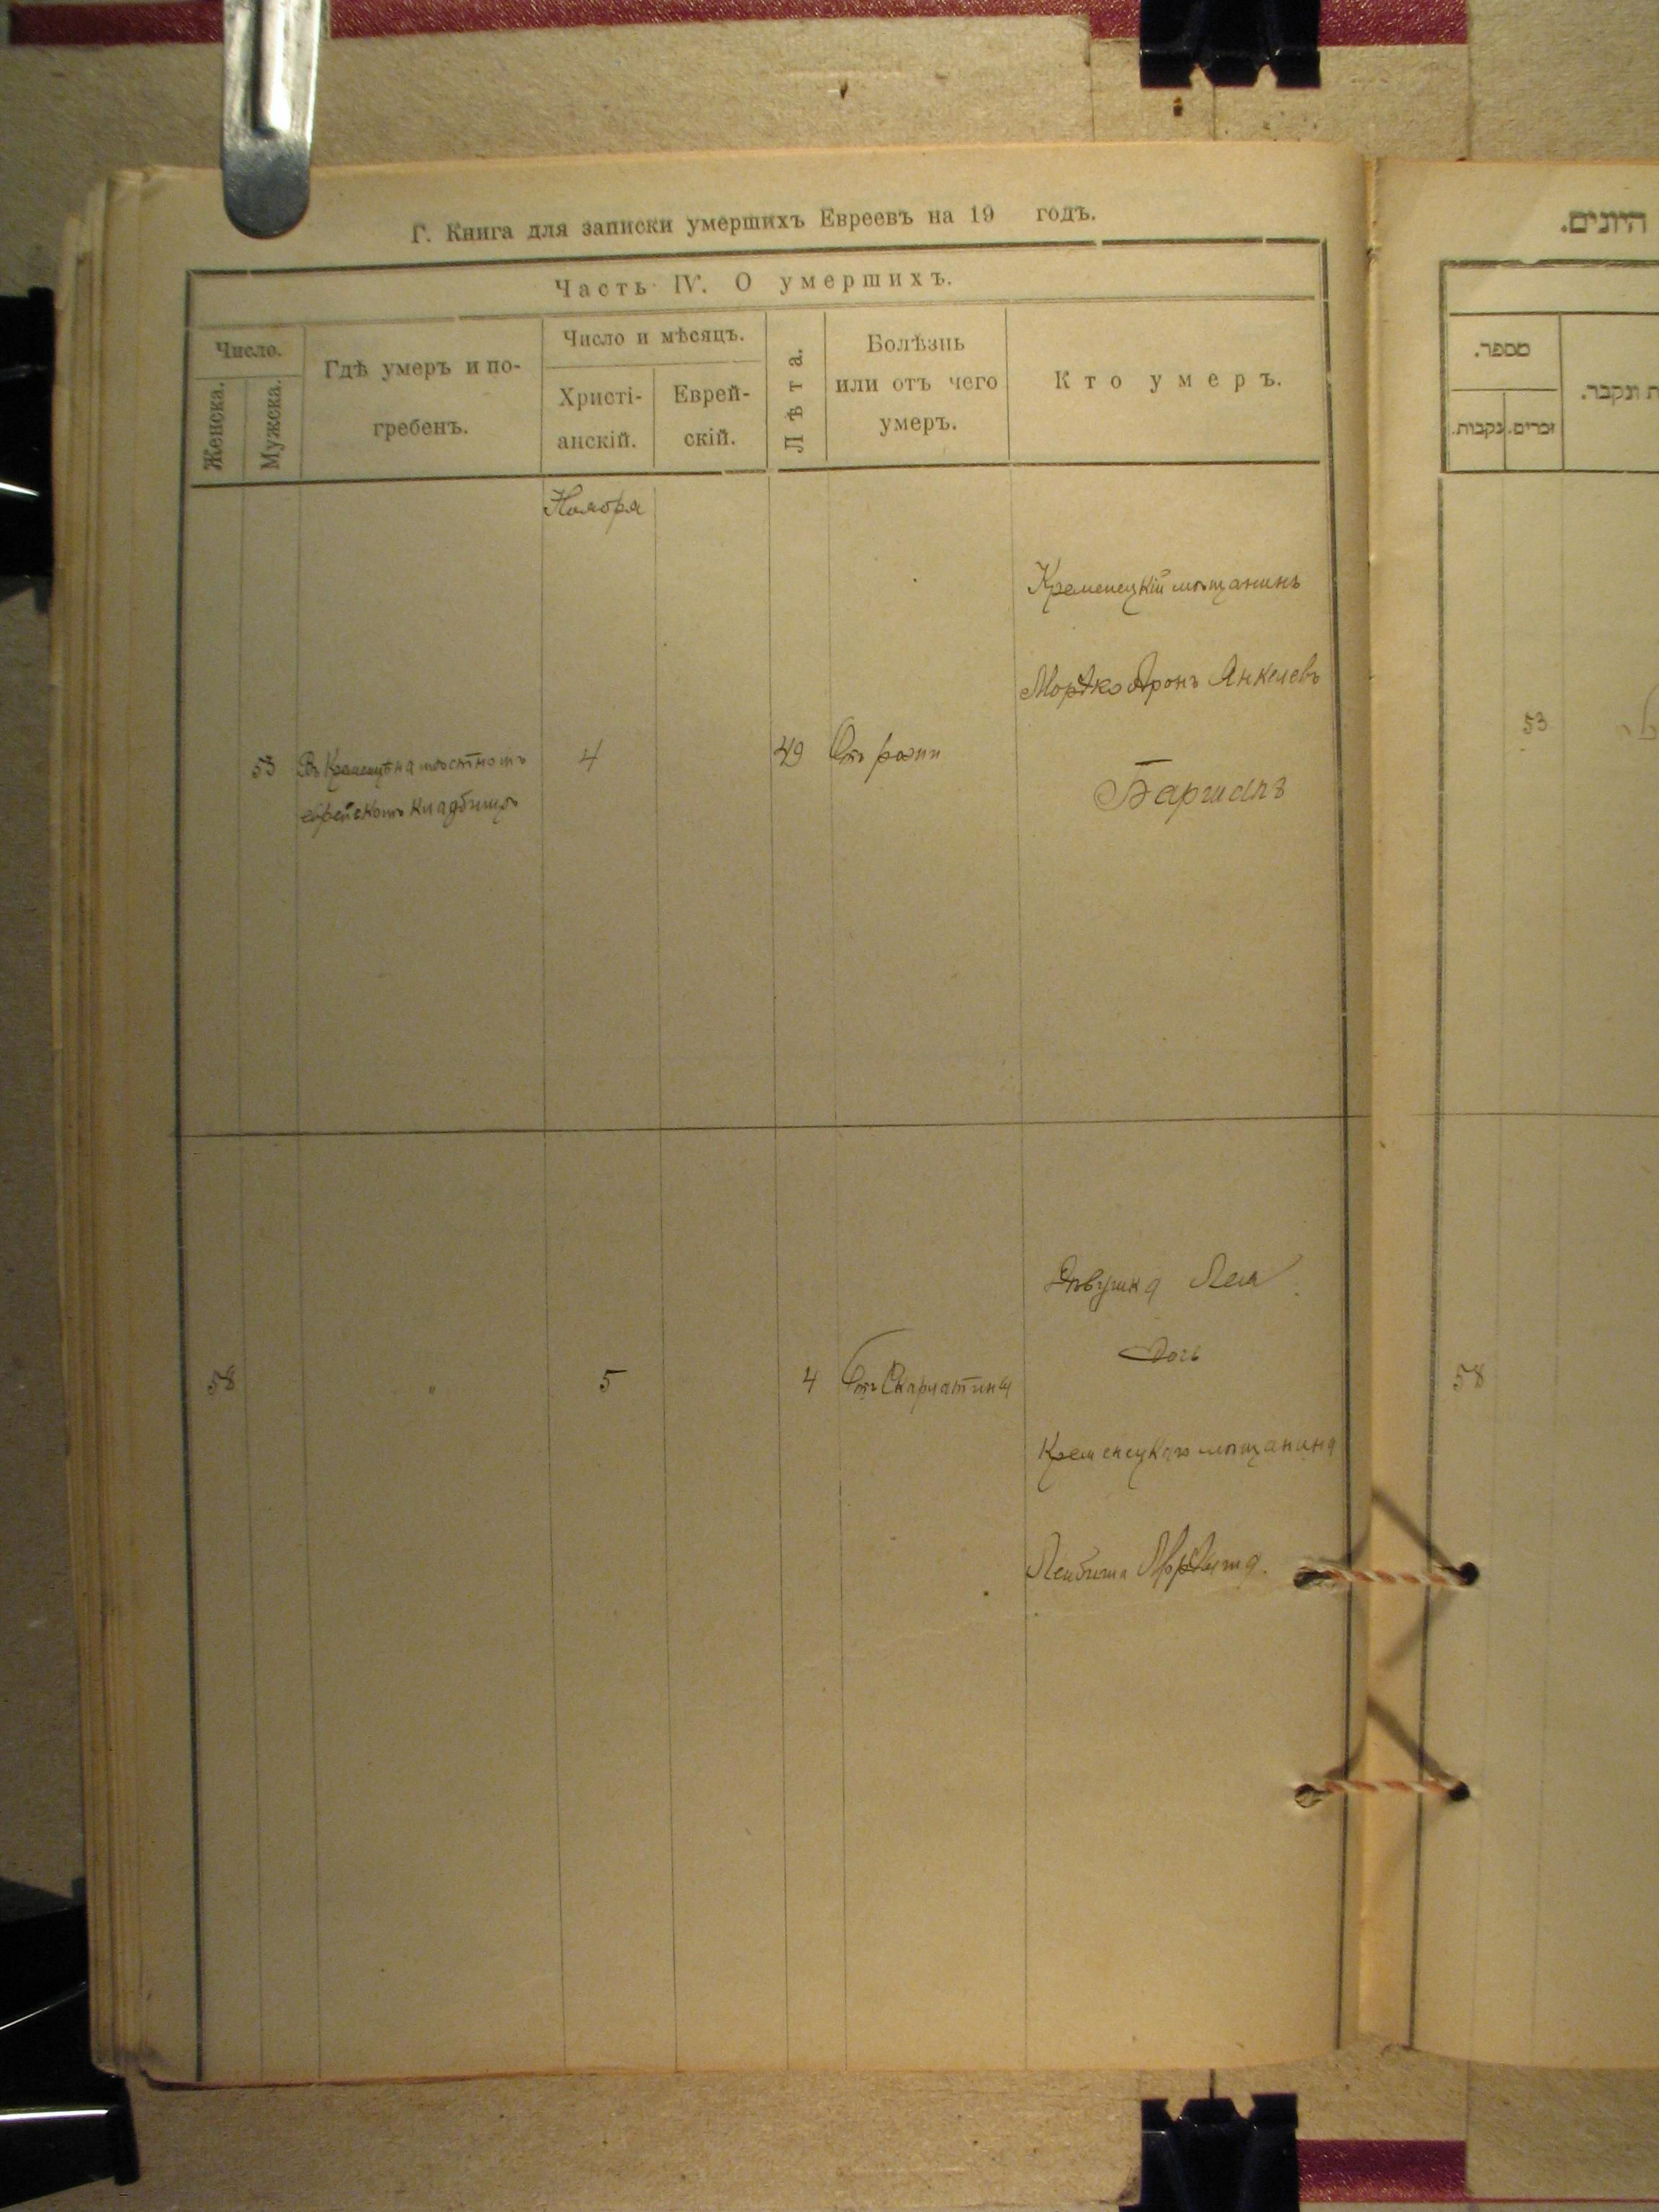 Г. Книга для записки умершихъ Евреевъ на 19 годъ.
Часть IV. О умершихъ.
Число.
Женска.
Мужска.
Гдѣ умеръ и по-
гребенъ.
Число и мѣсяцъ.
Христі-
анскій.
Еврей-
скій.
Лѣта.
Болѣзнь
или отъ чего
умеръ.
Кто умеръ.
Ноября
Кременецкій мѣщанинъ
Мордко Аронъ Янкелевъ
53 Въ Кременцѣ на мѣстномъ 4 49 Отъ рожи
еврейскомъ кладбищѣ
Баршапъ
Дѣвушка Лея
Дочь
58 " 5 4 Отъ Скарлатины
Кременецкаго мѣщанина
Лейбиша
היונים.
מספר.
זכרים.
נקבות.
ונקבר.
53
58